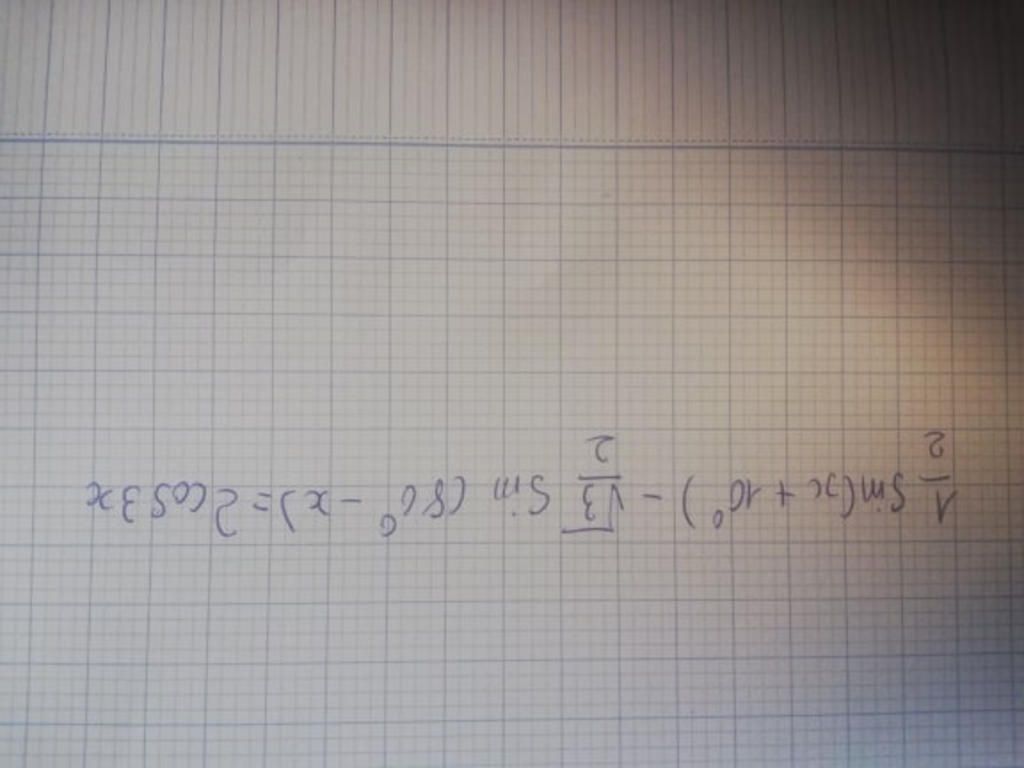 1/2 Sin(x + 10°) - √3/2 Sin (80° - x) = 2cos3x